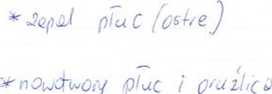 * zapal płuc (ostre)
* nowotwory płuc i gruźlica